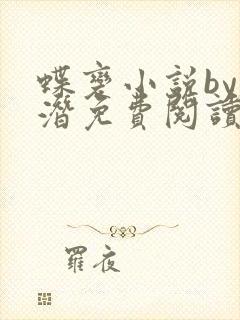 蝶变小说by
潜免费閱讀
羅夜